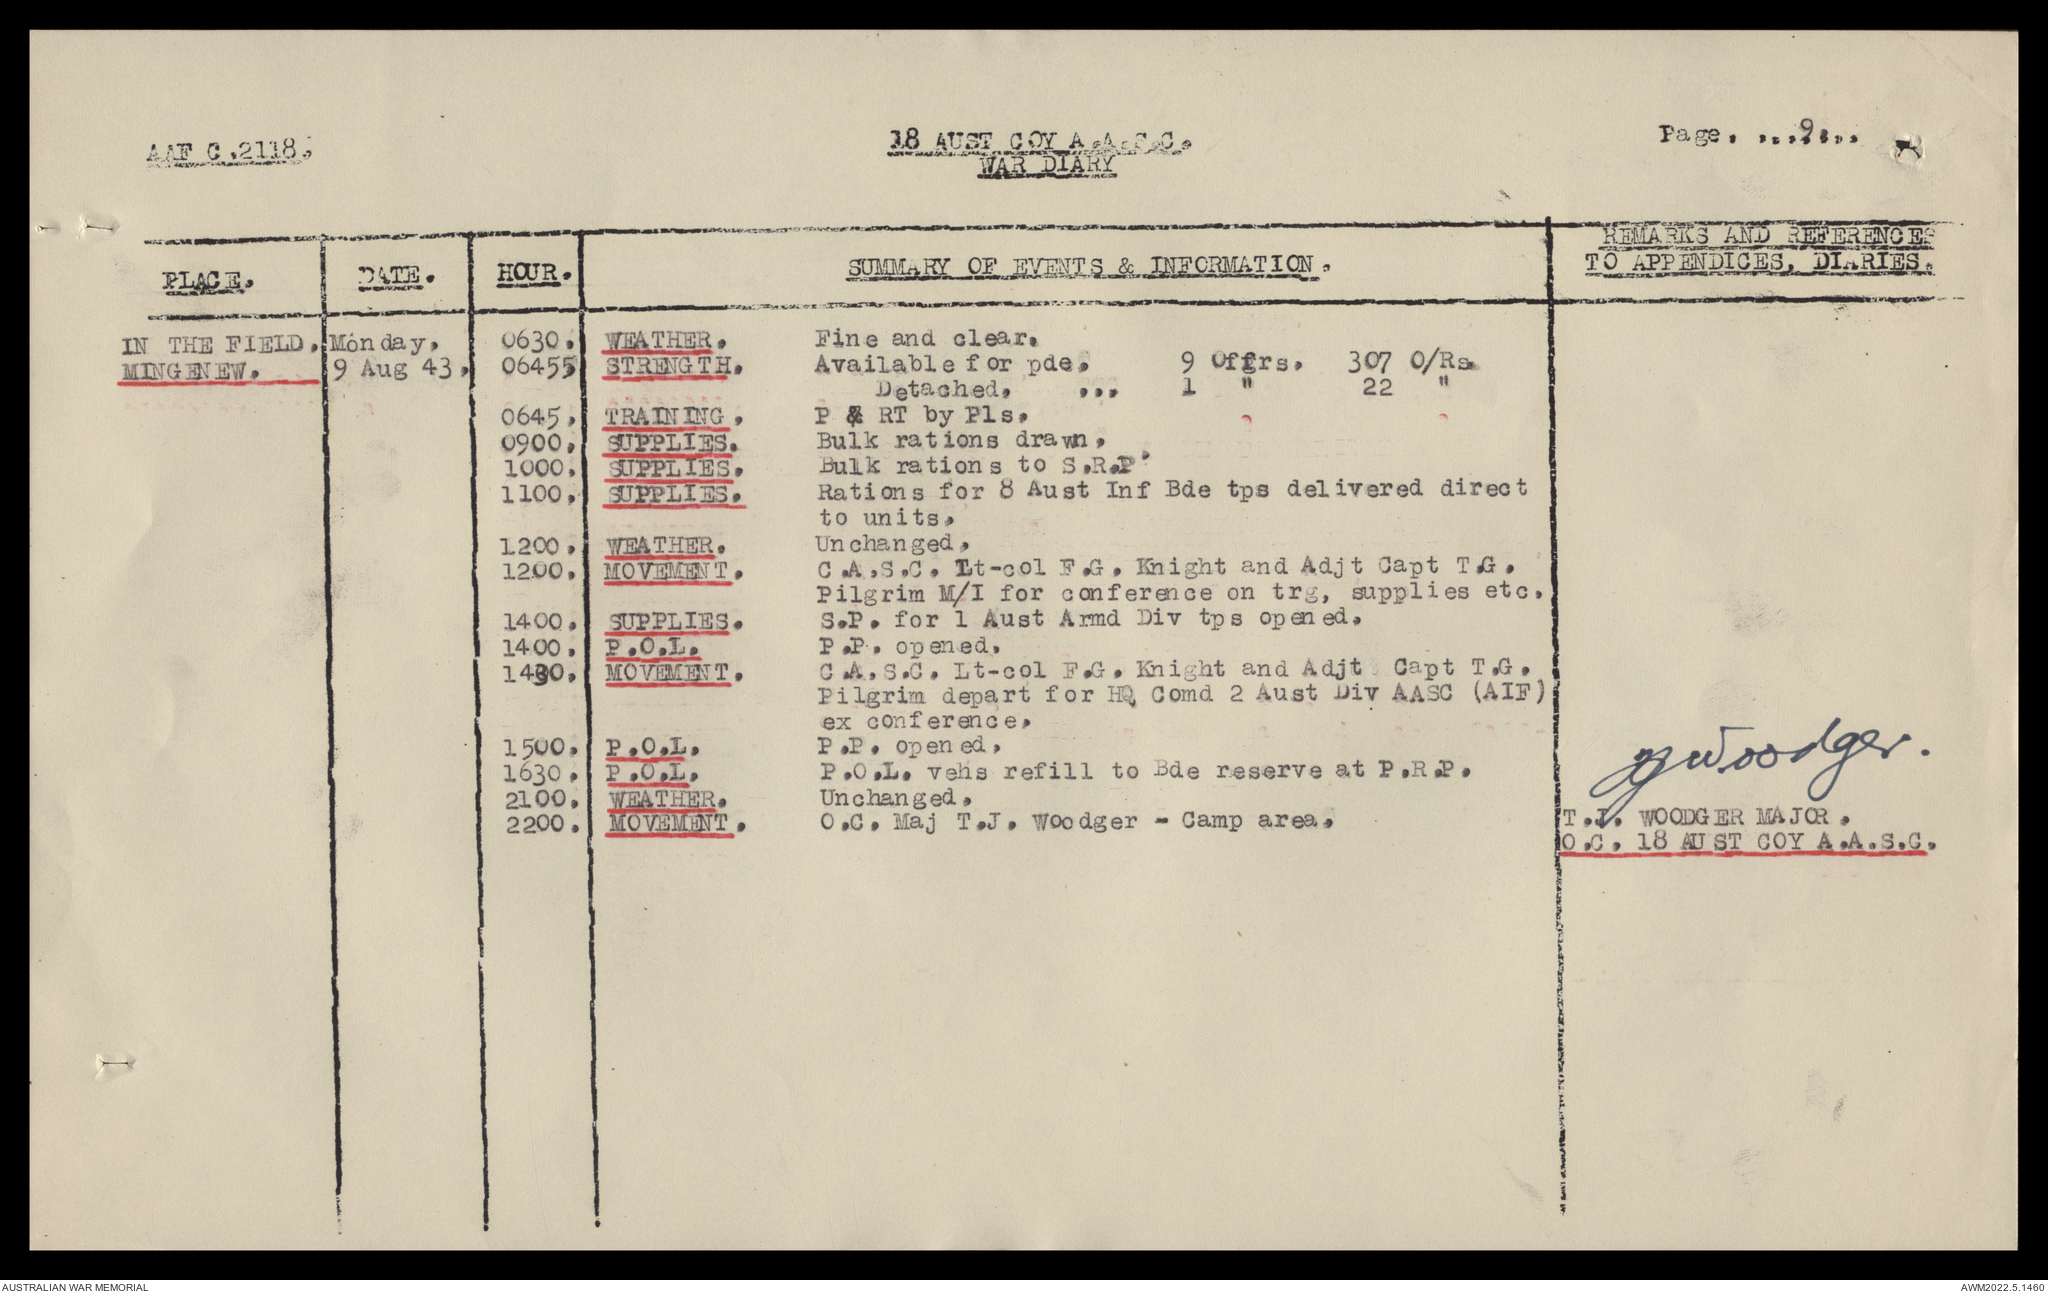 AAF C.2118.
18 AUST COY A.A.S.C.
WAR DIARY
Page. ...9...
PLACE. DATE. HOUR. SUMMARY OF EVENTS & INFORMATION. REMARKS AND REFERENCES
TO APPENDICES, DIARIES.
IN THE FIELD. Monday. 0630. WEATHER. Fine and clear.
MINGENEW. 9 Aug 43. 06455 STRENGTH. Available for pde. 9 Offrs. 307 O/Rs
Detached. ... 1 " 22 "
0645. TRAINING. P & RT by Pls.
0900. SUPPLIES. Bulk rations drawn.
1000. SUPPLIES. Bulk rations to S.R.P.
1100. SUPPLIES. Rations for 8 Aust Inf Bde tps delivered direct
to units.
1200. WEATHER. Unchanged.
1200. MOVEMENT. C.A.S.C. Lt-col F.G. Knight and Adjt Capt T.G.
Pilgrim M/I for conference on trg, supplies etc.
1400. SUPPLIES. S.P. for 1 Aust Armd Div tps opened.
1400. P.O.L. P.P. opened.
1430. MOVEMENT. C.A.S.C. Lt-col F.G. Knight and Adjt Capt T.G.
Pilgrim depart for HQ Comd 2 Aust Div AASC (AIF)
ex conference.
1500. P.O.L. P.P. opened.
1630. P.O.L. P.O.L. vehs refill to Bde reserve at P.R.P.
2100. WEATHER. Unchanged.
2200. MOVEMENT. O.C. Maj T.J. Woodger - Camp area.
TJWoodger.
T.J. WOODGER MAJOR.
O.C. 18 AUST COY A.A.S.C.
AUSTRALIAN WAR MEMORIAL
AWM2022.5.1460